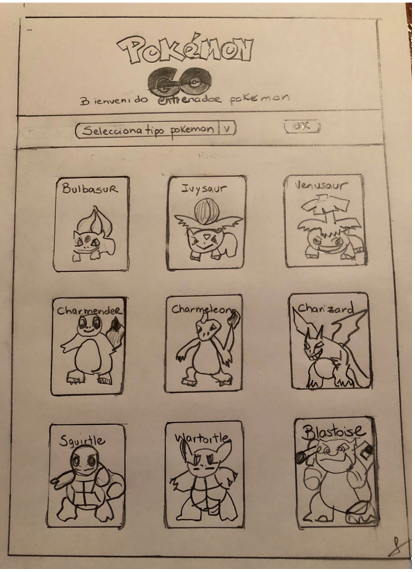 POKÉMON
GO
Bienvenido entrenador pokemon
Selecciona tipo pokemon v
OK
Bulbasur Ivysaur Venusaur
Charmender Charmeleon Charizard
Squirtle Wartortle Blastoise